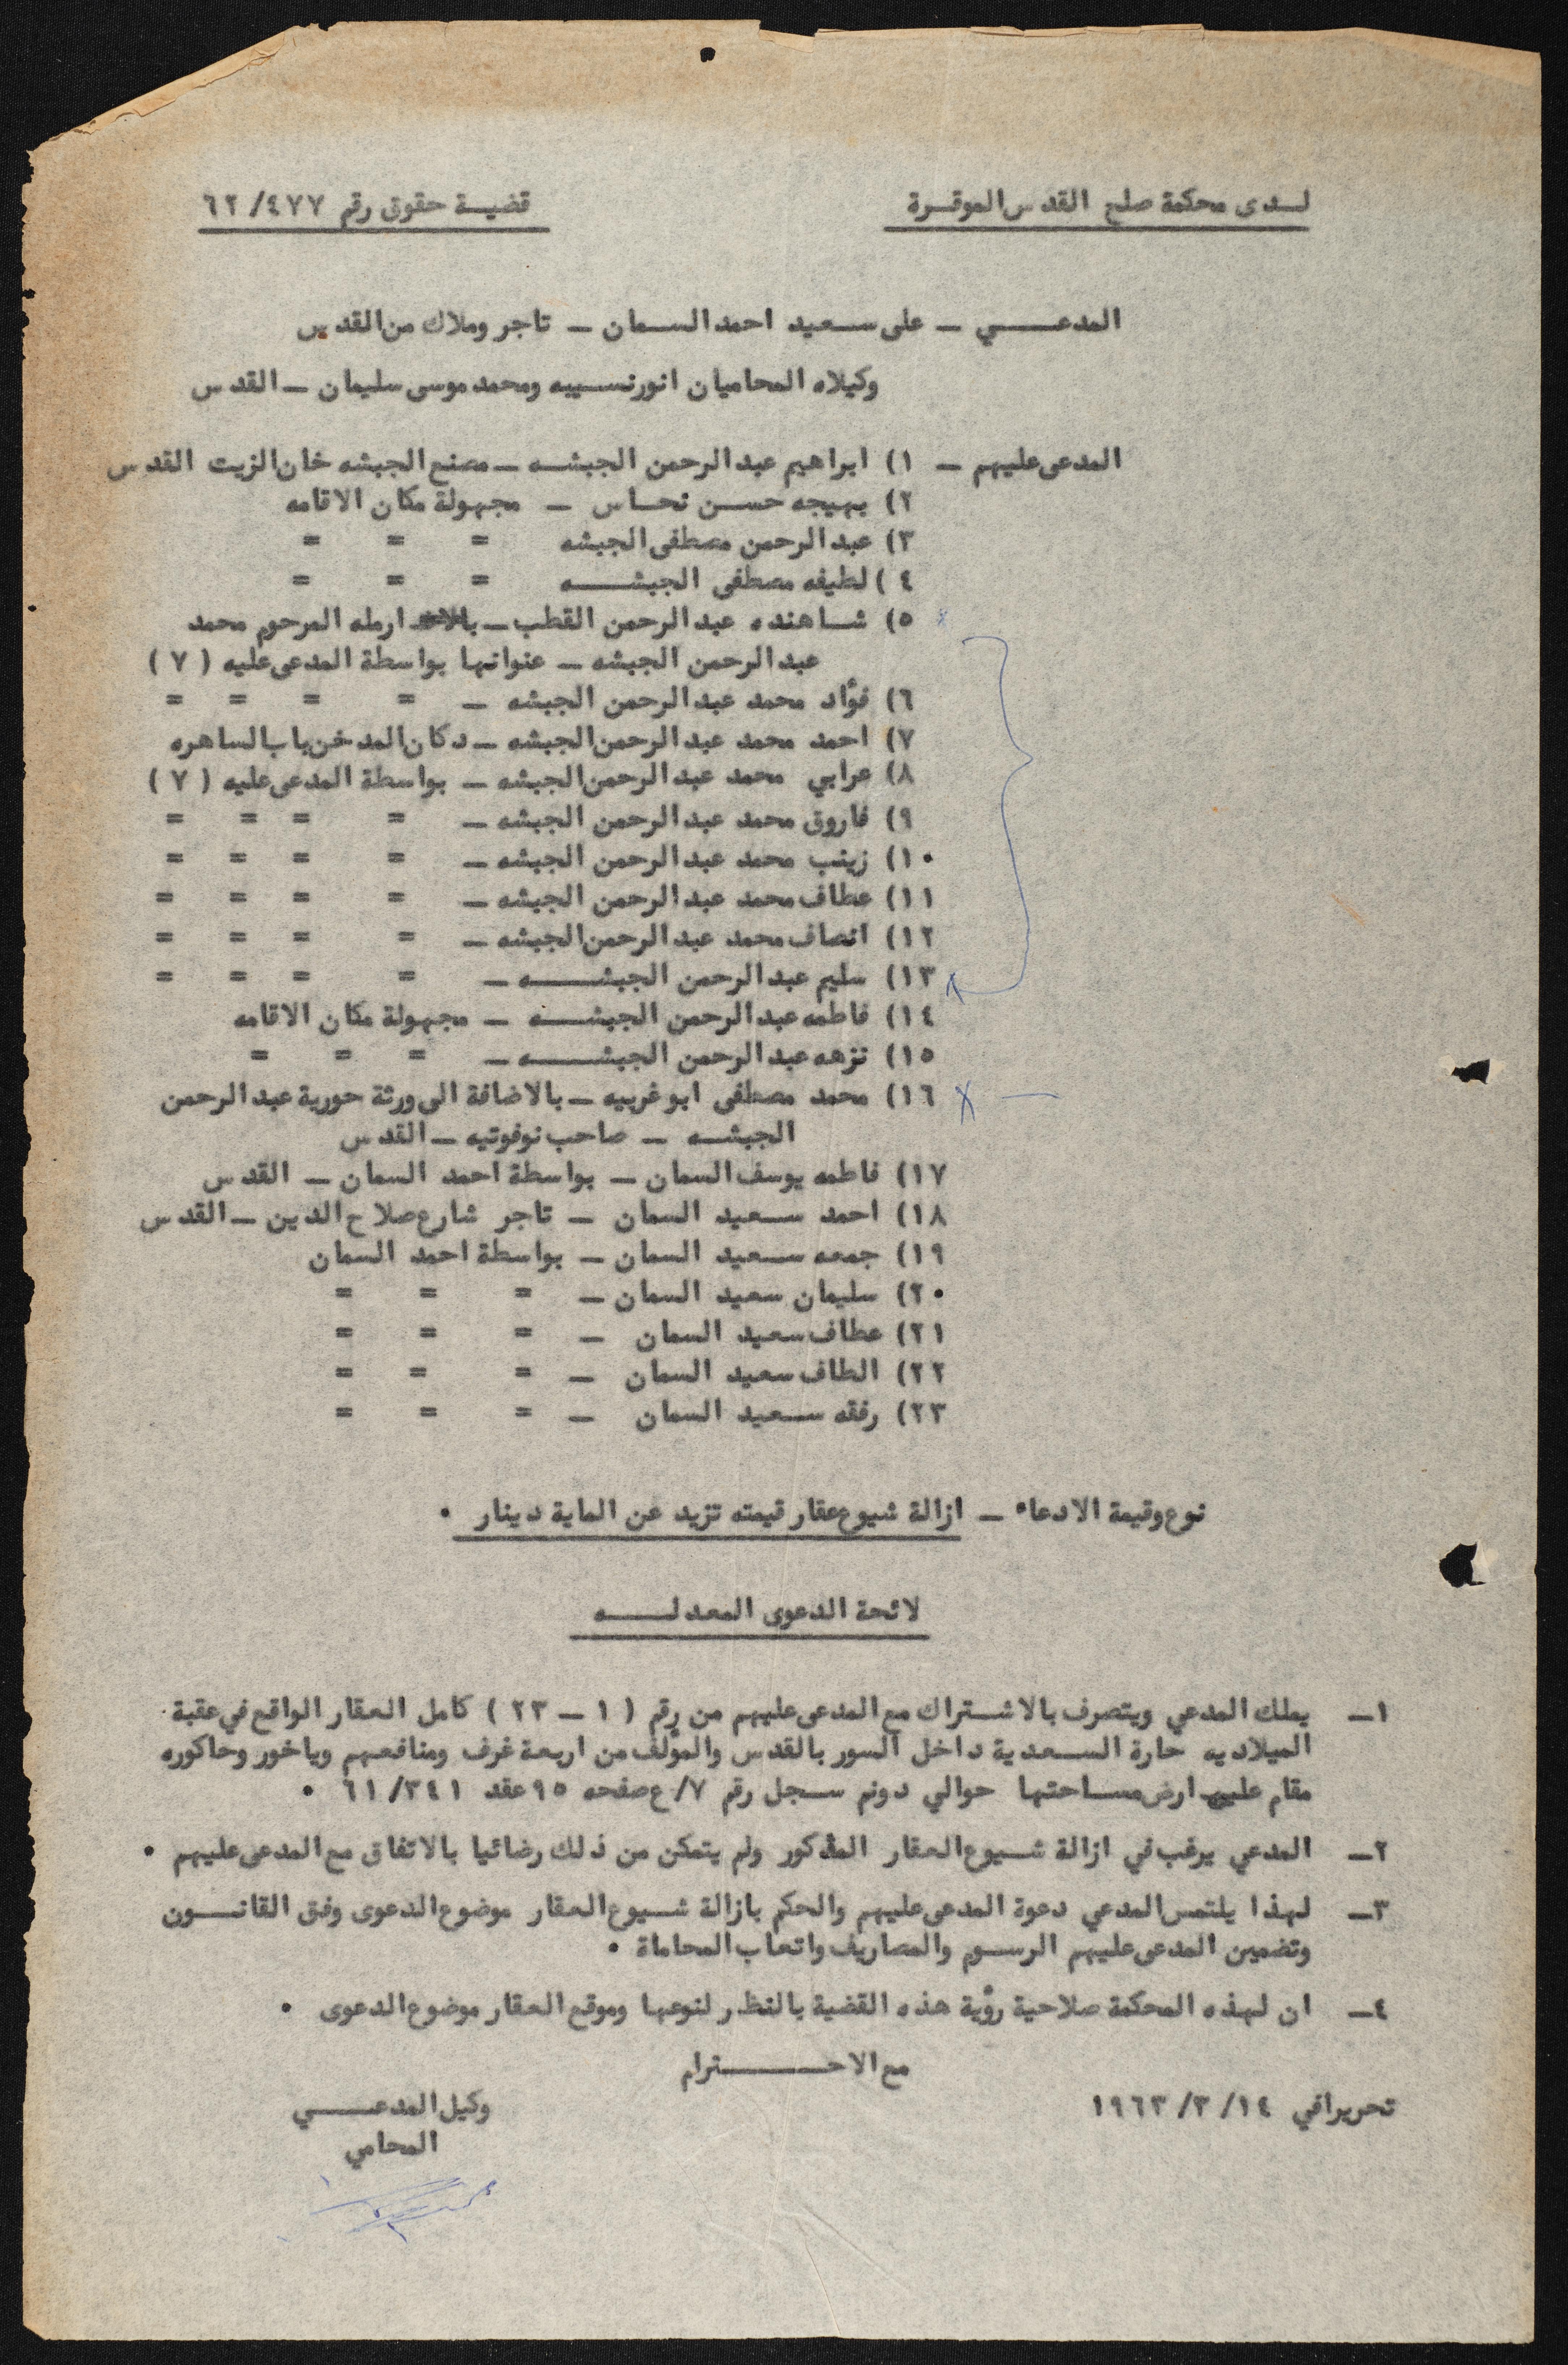 لـدى محكمة صلح القدس الموقـرة
قضيـة حقوق رقم ٤٧٧/ ٦٢
المدعـــي ـ على سـعيد احمد السـمان ـ تاجر وملاك من القدس
وكيلاه المحاميان انور نسـيبه ومحمد موسى سليمان ـ القدس
المدعى عليهم ـ ١) ابراهيم عبد الرحمن الجبشـه ـ مصنع الجبشه خان الزيت القدس
٢) بهيجه حسـن نحـاس ـ مجهولة مكان الاقامه
٣) عبد الرحمن مصطفى الجبشه = = =
٤) لطيفه مصطفى الجبشـــه = = =
٥) شـاهنده عبد الرحمن القطب ـ ارمله المرحوم محمد
عبد الرحمن الجبشه ـ عنوانها بواسطة المدعى عليه ( ٧ )
٦) فؤاد محمد عبد الرحمن الجبشه ـ = = = =
٧) احمد محمد عبد الرحمن الجبشه ـ دكان المدخن باب الساهره
٨) عرابي محمد عبد الرحمن الجبشه ـ بواسطة المدعى عليه ( ٧ )
٩) فاروق محمد عبد الرحمن الجبشه ـ = = = =
١٠) زينب محمد عبد الرحمن الجبشه ـ = = = =
١١) عطاف محمد عبد الرحمن الجبشه ـ = = = =
١٢) انصاف محمد عبد الرحمن الجبشه ـ = = = =
١٣) سليم عبد الرحمن الجبشـــه ـ = = = =
١٤) فاطمه عبد الرحمن الجبشـــه ـ مجهولة مكان الاقامه
١٥) نزهه عبد الرحمن الجبشـــه ـ = = =
١٦) محمد مصطفى ابو غربيه ـ بالاضافة الى ورثة حورية عبد الرحمن
الجبشـه ـ صاحب نوفوتيه ـ القدس
١٧) فاطمه يوسف السمان ـ بواسطة احمد السمان ـ القدس
١٨) احمد سـعيد السمان ـ تاجر شارع صلاح الدين ـ القدس
١٩) جمعه سـعيد السمان ـ بواسطة احمد السمان
٢٠) سليمان سعيد السمان ـ = = =
٢١) عطاف سعيد السمان ـ = = =
٢٢) الطاف سعيد السمان ـ = = =
٢٣) رفقه سـعيد السمان ـ = = =
نوع وقيمة الادعاء ـ ازالة شيوع عقار قيمته تزيد عن الماية دينار ٠
لائحة الدعوى المعدلـــه
١ـ يملك المدعي ويتصرف بالاشـتراك مع المدعى عليهم من رقم ( ١ ـ ٢٣ ) كامل العقار الواقع في عقبة
الميلاديه حارة السـعدية داخل السور بالقدس والمؤلف من اربعة غرف ومنافعهم وياخور وحاكوره
مقام عليهم ارض مسـاحتها حوالي دونم سـجل رقم ٧/ع صفحه ٩٥ عقد ٣٤١/ ٦١ ٠
٢ـ المدعي يرغب في ازالة شـيوع العقار المذكور ولم يتمكن من ذلك رضائيا بالاتفاق مع المدعى عليهم ٠
٣ـ لهذا يلتمس المدعي دعوة المدعى عليهم والحكم بازالة شـيوع العقار موضوع الدعوى وفق القانـون
وتضمين المدعى عليهم الرسـوم والمصاريف واتعاب المحاماة ٠
٤ـ ان لهذه المحكمة صلاحية رؤية هذه القضية بالنظر لنوعها وموقع العقار موضوع الدعوى ٠
مع الاحـــترام
تحريرا في ١٤/ ٣/ ١٩٦٣
وكيل المدعـــي
المحامي